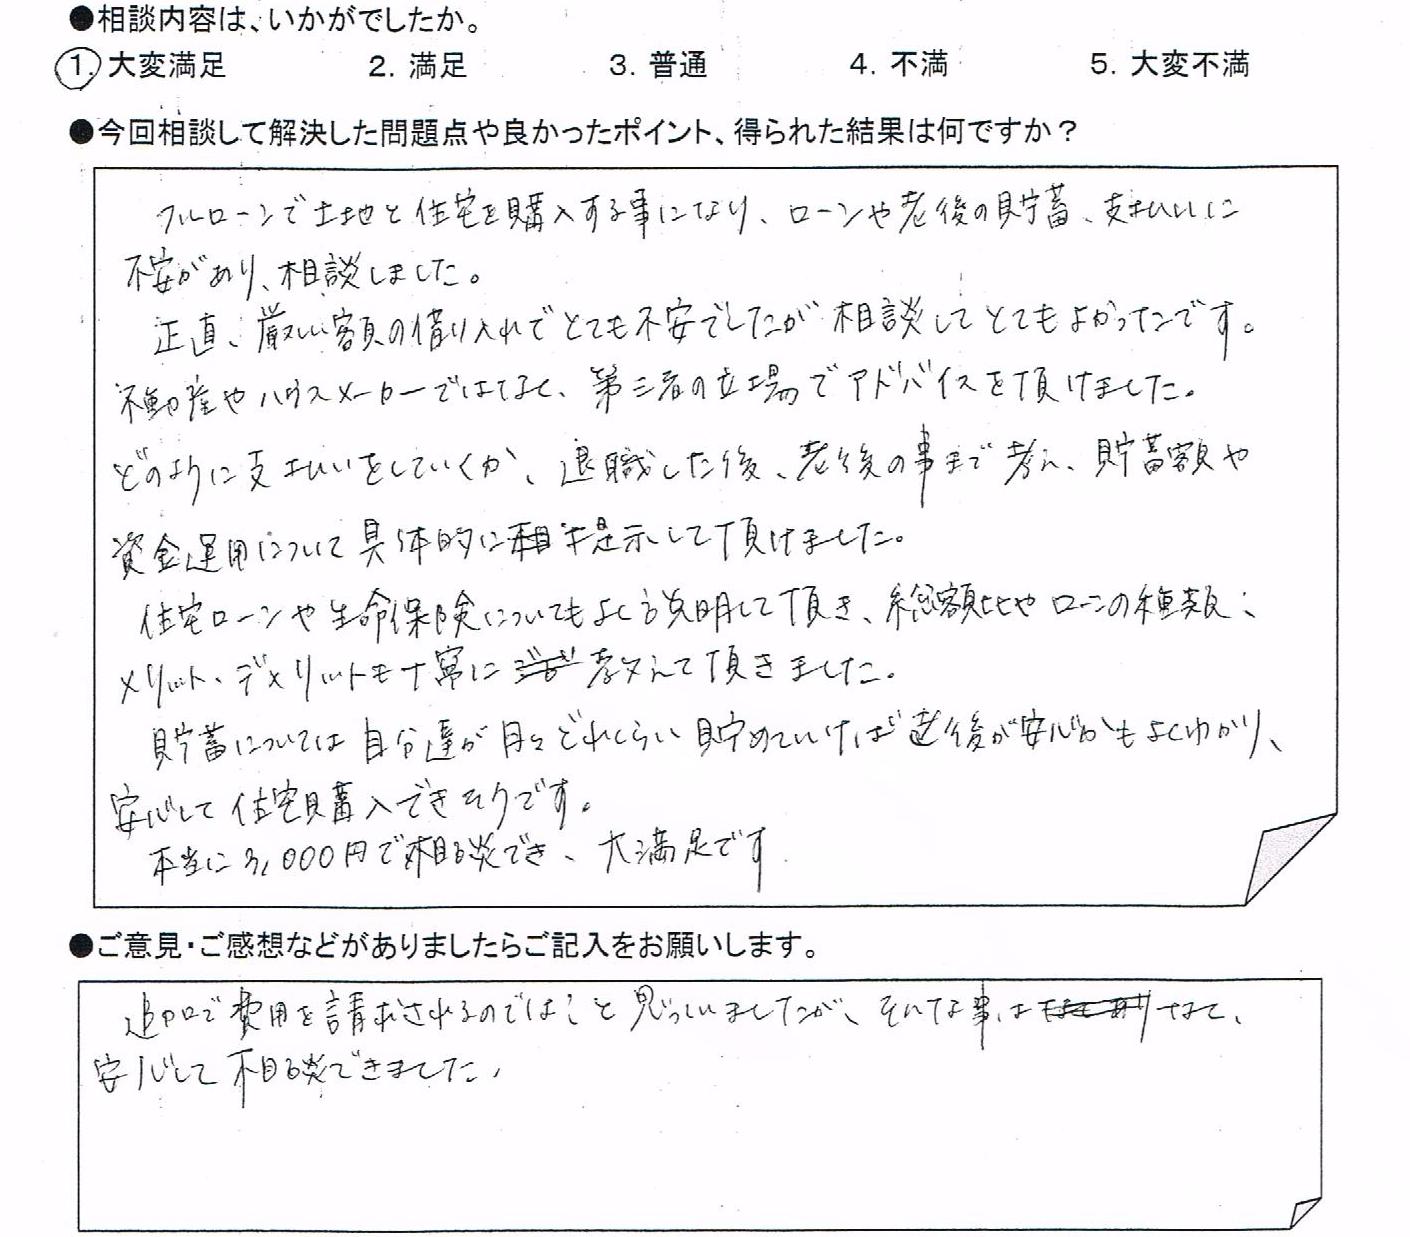 ●相談内容は、いかがでしたか。
1. 大変満足 2. 満足 3. 普通 4. 不満 5. 大変不満
●今回相談して解決した問題点や良かったポイント、得られた結果は何ですか？
フルローンで土地と住宅を購入する事になり、ローンや老後の貯蓄、支払いに
不安があり、相談しました。
正直、厳しい額の借り入れでとても不安でしたが相談してとてもよかったです。
不動産やハウスメーカーではなく、第三者の立場でアドバイスを頂けました。
どのように支払いをしていくか、退職した後、老後の事まで考え、貯蓄額や
資金運用について具体的に提示して頂けました。
住宅ローンや生命保険についてもよく説明して頂き、総額比やローンの種類、
メリット、デメリットも丁寧に教えて頂きました。
貯蓄については自分達が月々どれくらい貯めていけば老後が安心かもよくわかり、
安心して住宅購入できそうです。
本当に3,000円で相談でき、大満足です
●ご意見・ご感想などがありましたらご記入をお願いします。
追加で費用を請求されるのでは？と思っていましたが、そんな事はなく、
安心して相談できました。